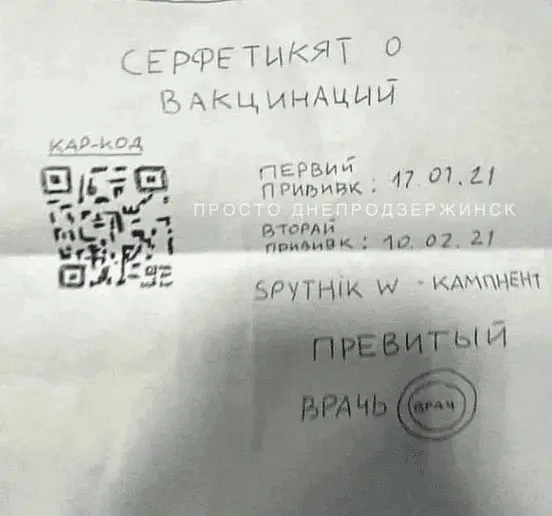 СЕРФЕТИКЯТ О
ВАКЦИНАЦИЙ
КАР-КОД
ПЕРВИЙ
ПРИВИВК : 17.01.21
ПРОСТО ДНЕПРОДЗЕРЖИНСК
ВТОРАЙ
ПРИВИВК : 10.02.21
SPYTHiK W - КАМПНЕНТ
ПРЕВИТЫЙ
ВРАЧЬ ВРАЧ